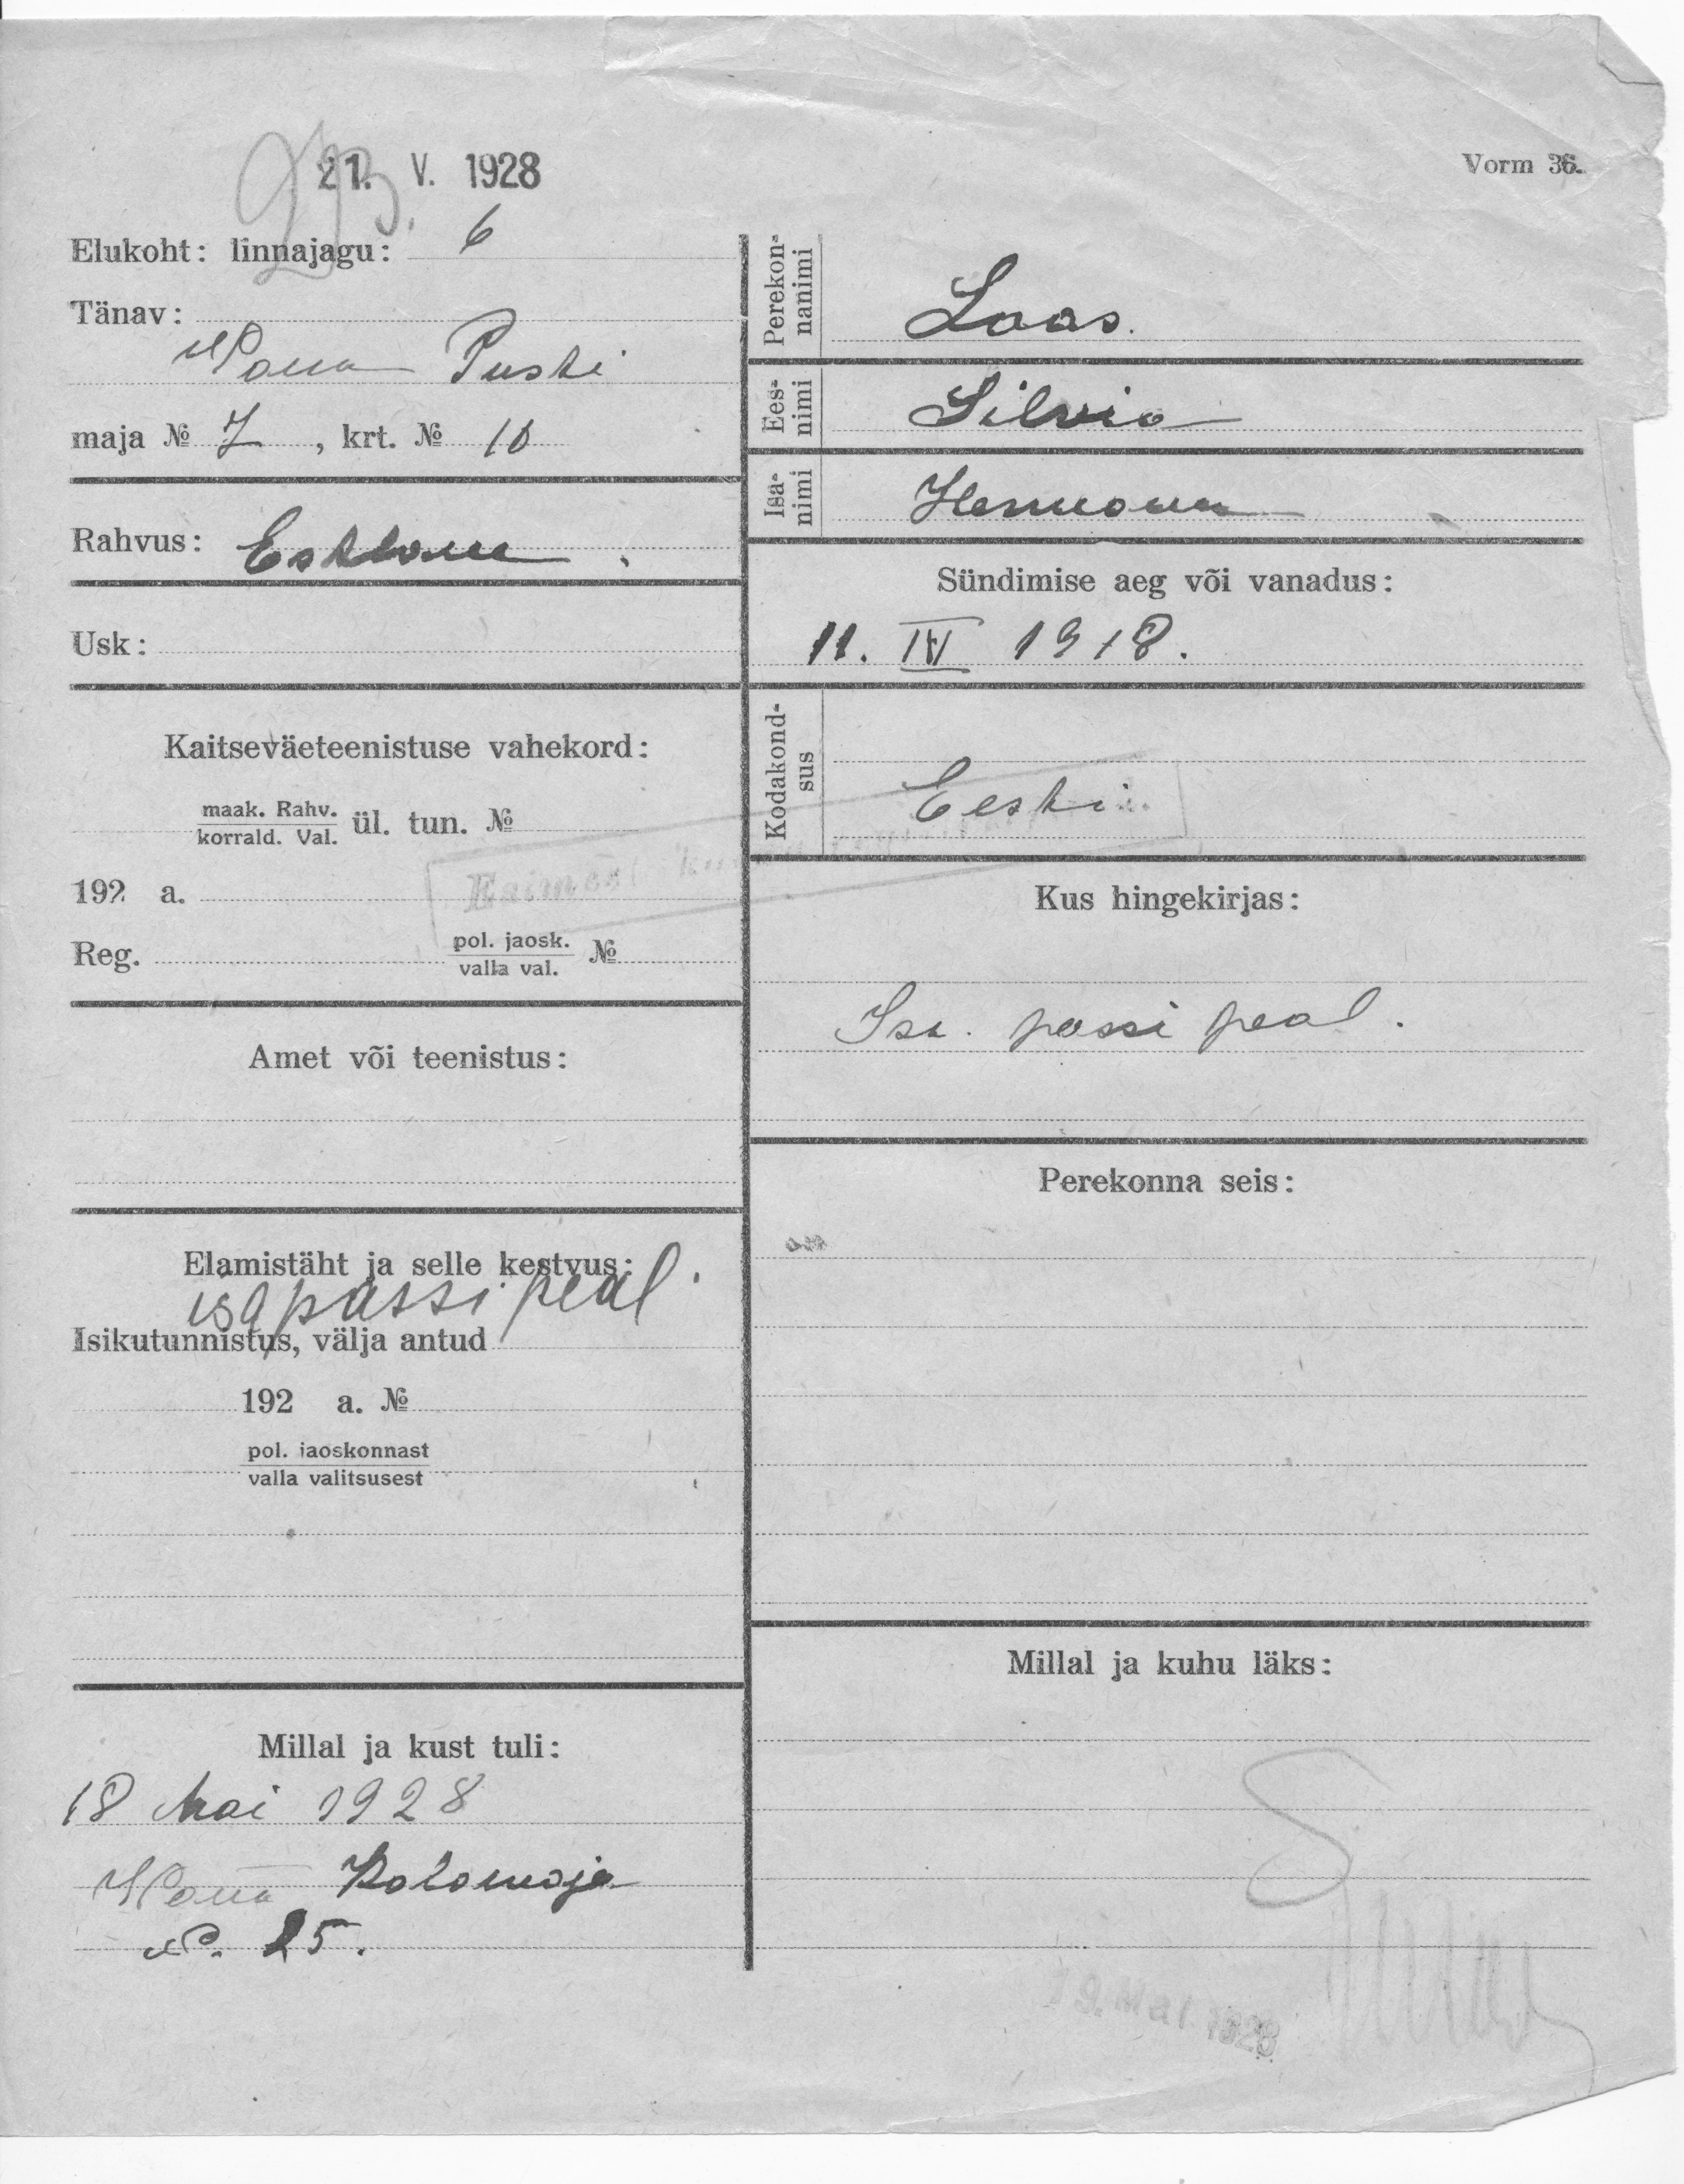 21. V. 1928
Vorm 36.
Elukoht: linnajagu: 6
Tänav:
Wana Puski
maja № 7, krt. № 10
Rahvus: Estlane
Usk:
Kaitseväeteenistuse vahekord:
maak. Rahv.
korrald. Val. ül. tun. №
192 a.
Reg. pol. jaosk. №
valla val.
Amet või teenistus:
Elamistäht ja selle kestvus:
isa passi peal.
Isikutunnistus, välja antud
192 a. №
pol. jaoskonnast
valla valitsusest
Millal ja kust tuli:
18 Mai 1928
Wana Kalamaja
№. 25.
Perekon-
nanimi
Laas.
Ees-
nimi
Silvia
Isa-
nimi
Hermann
Sündimise aeg või vanadus:
11. IV 1918.
Kodakond-
sus
Eesti
Kus hingekirjas:
Isa. passi peal.
Perekonna seis:
Millal ja kuhu läks:
19. Mai 1928